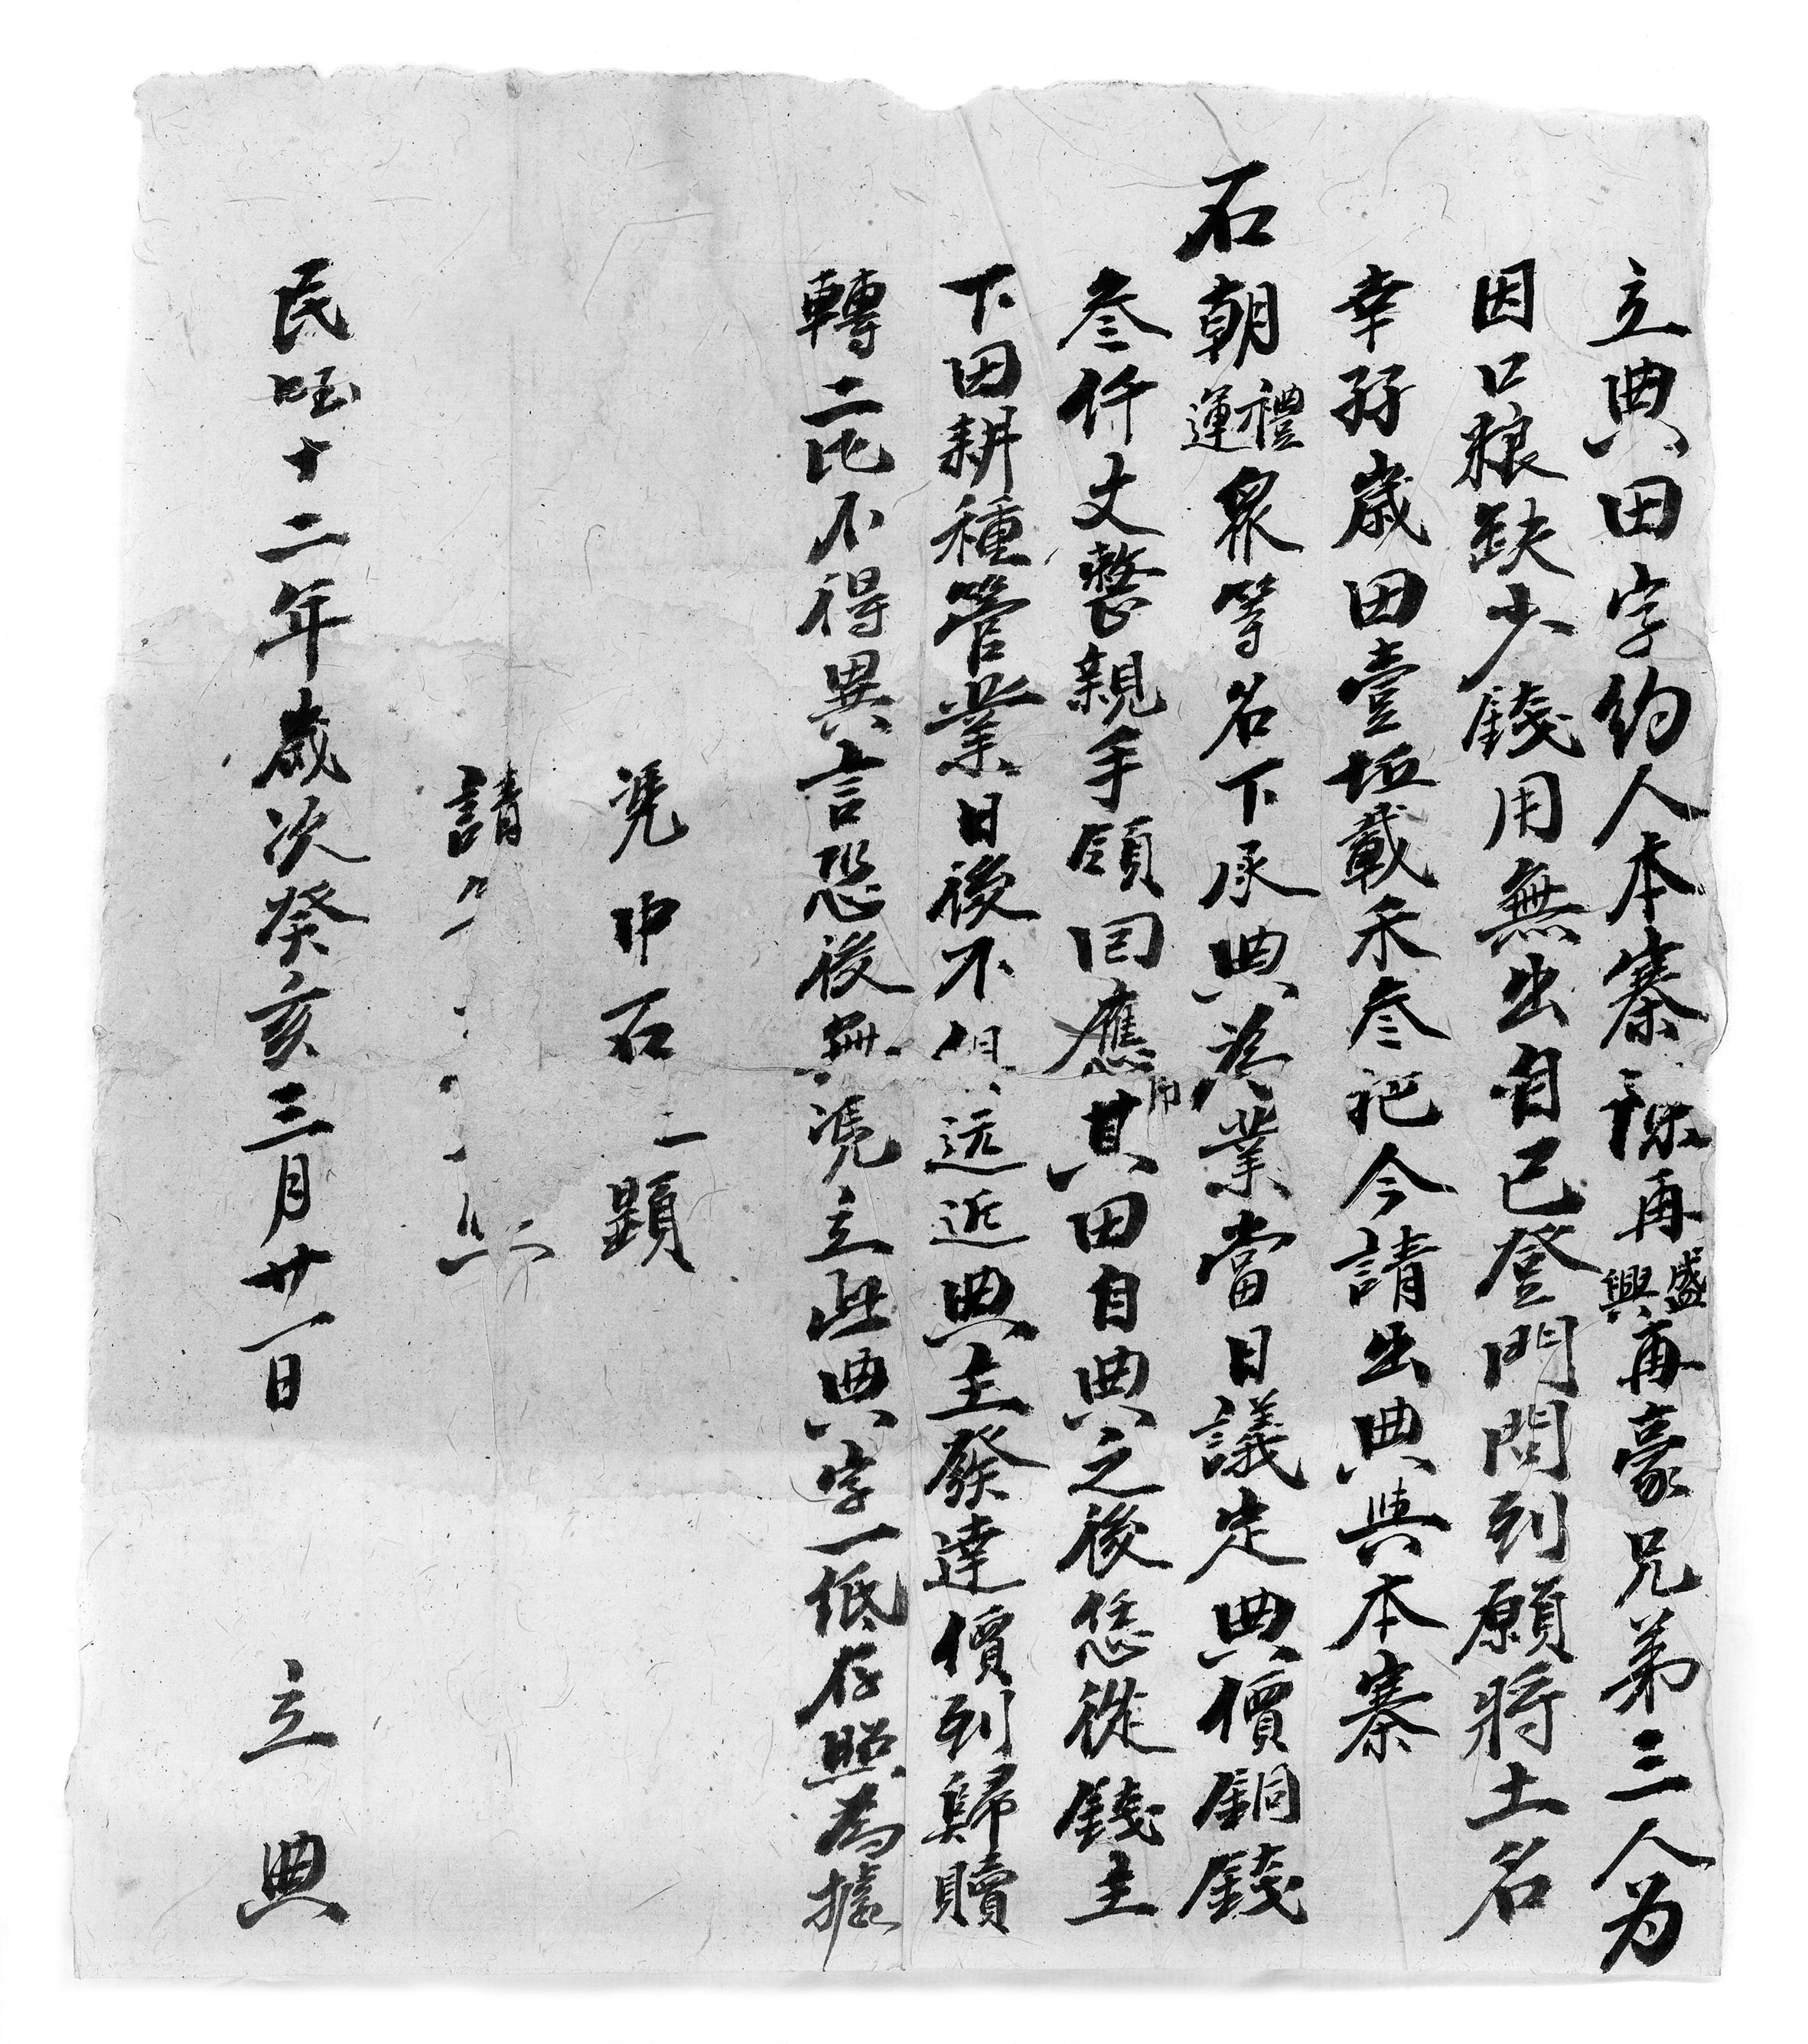 立典田字約人本寨再盛興再豪兄弟三人为
因口粮缺少錢用無出自己登門問到願將土名
幸孖歲田壹坵載禾叁把今請出典與本寨
石朝禮運眾等名下承典為業當日議定典價銅錢
叁仟文整親手領囘應用其田自典之後恁從錢主
下田耕種管業日後不俱远近典主發達價到歸贖
轉二比不得異言恐後無凴立此典字一紙存照為據
凴中石二顕
請
民国十二年歲次癸亥三月廿一日 立典